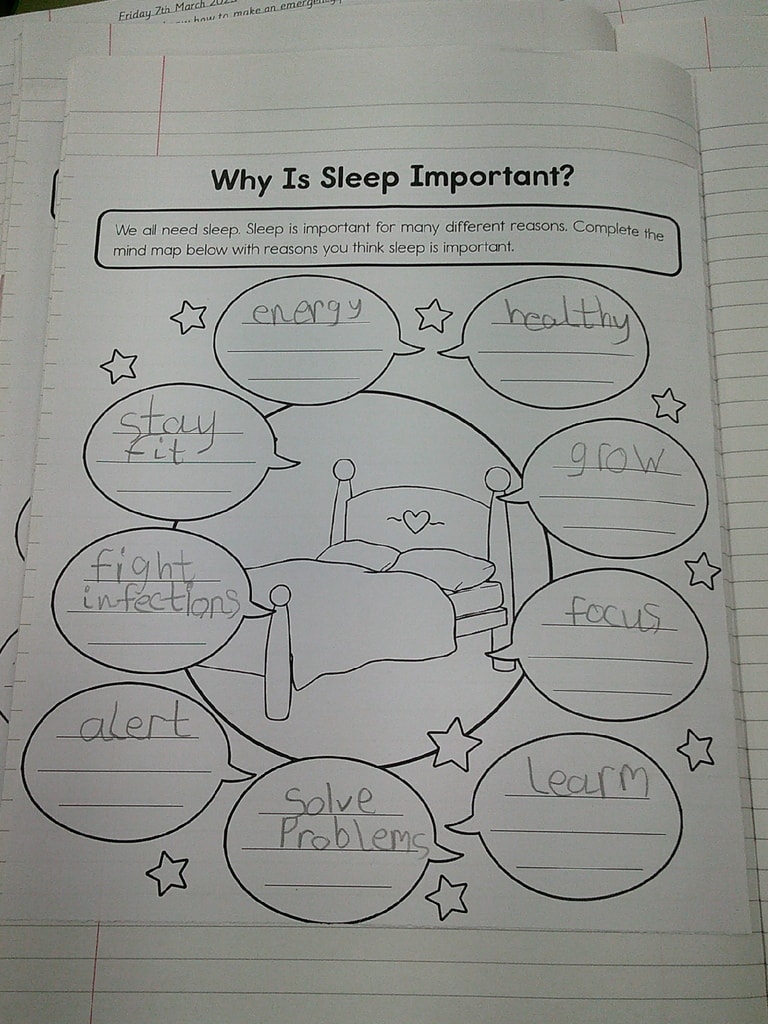 Friday 7th March
how to make an emergency
Why Is Sleep Important?
We all need sleep. Sleep is important for many different reasons. Complete the
mind map below with reasons you think sleep is important.
energy
healthy
stay
fit
grow
fight
infections
focus
alert
solve
Problems
learm